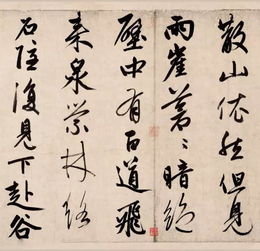 散山依然但見
兩崖蒼々暗絕
壁中有百道飛
來泉縈林絡
石隱復見下赴谷